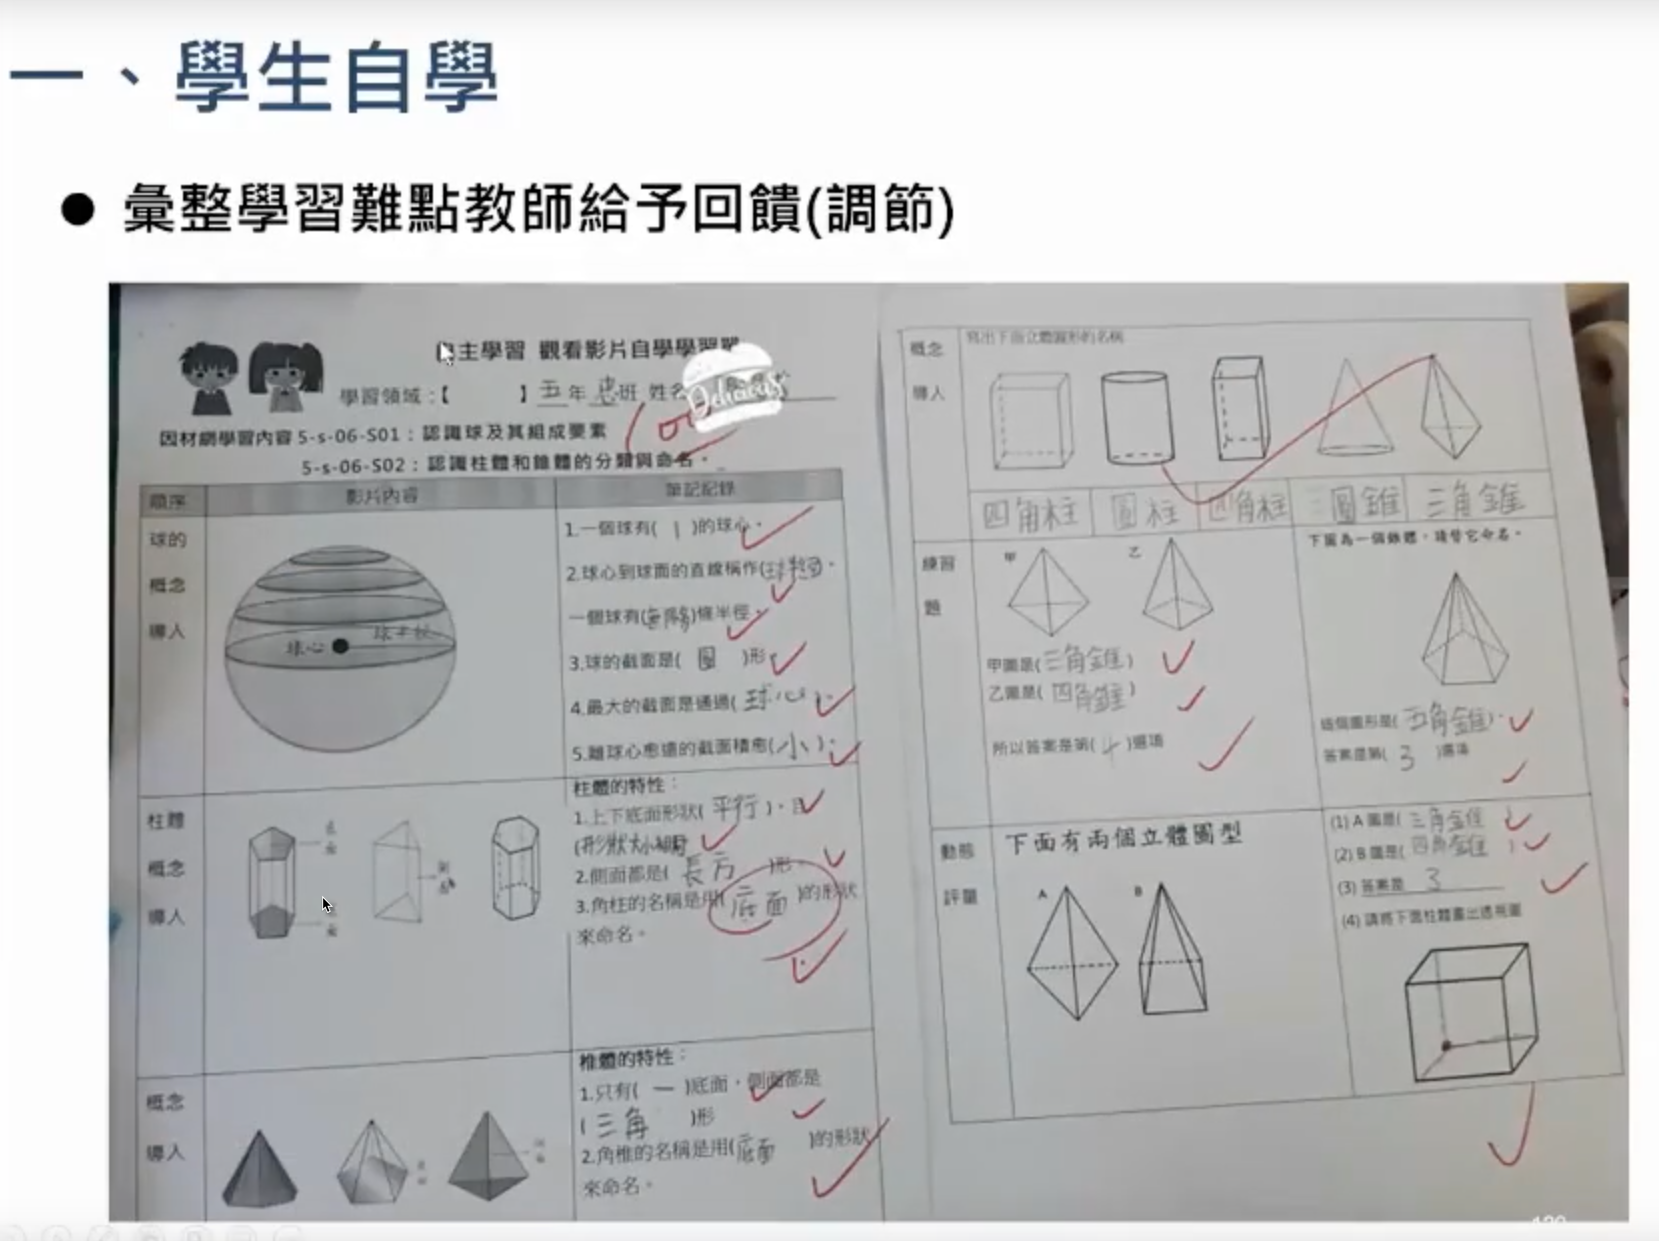 一、學生自學
● 彙整學習難點教師給予回饋(調節)
自主學習 觀看影片自學學習單
學習領域：【 】五年忠班 姓名
Delicious
因材網學習內容 5-s-06-S01：認識球及其組成要素
5-s-06-S02：認識柱體和錐體的分類與命名。
順序 影片內容 筆記記錄
球的
概念
導入
球心 球半徑
1.一個球有( 1 )的球心。
2.球心到球面的直線稱作(
一個球有(無限)條半徑。
3.球的截面是( 圓 )形
4.最大的截面是通過( 球心 )。
5.離球心愈遠的截面積愈( 小 )。
柱體
概念
導入
柱體的特性：
1.上下底面形狀( 平行 )，且
(形狀大小
2.側面都是( 長方 )形。
3.角柱的名稱是用( 底面 )的形狀
來命名。
概念
導入
椎體的特性：
1.只有( 一 )底面，側面都是
( 三角 )形
2.角椎的名稱是用(底面 )的形狀
來命名。
概念
導入
寫出下面立體圖形的名稱
四角柱 圓柱 四角柱 圓錐 三角錐
練習
題
甲 乙
甲圖是(三角錐)
乙圖是( 四角錐 )
所以答案是第( 4 )選項
下圖為一個錐體，請替它命名。
這個圖形是( 五角錐)。
答案是第( 3 )選項
動態
評量
下面有兩個立體圖型
A B
(1) A 圖是( 三角錐 )
(2) B 圖是( 四角錐 )
(3) 答案是 3
(4) 請將下面柱體畫出透視圖